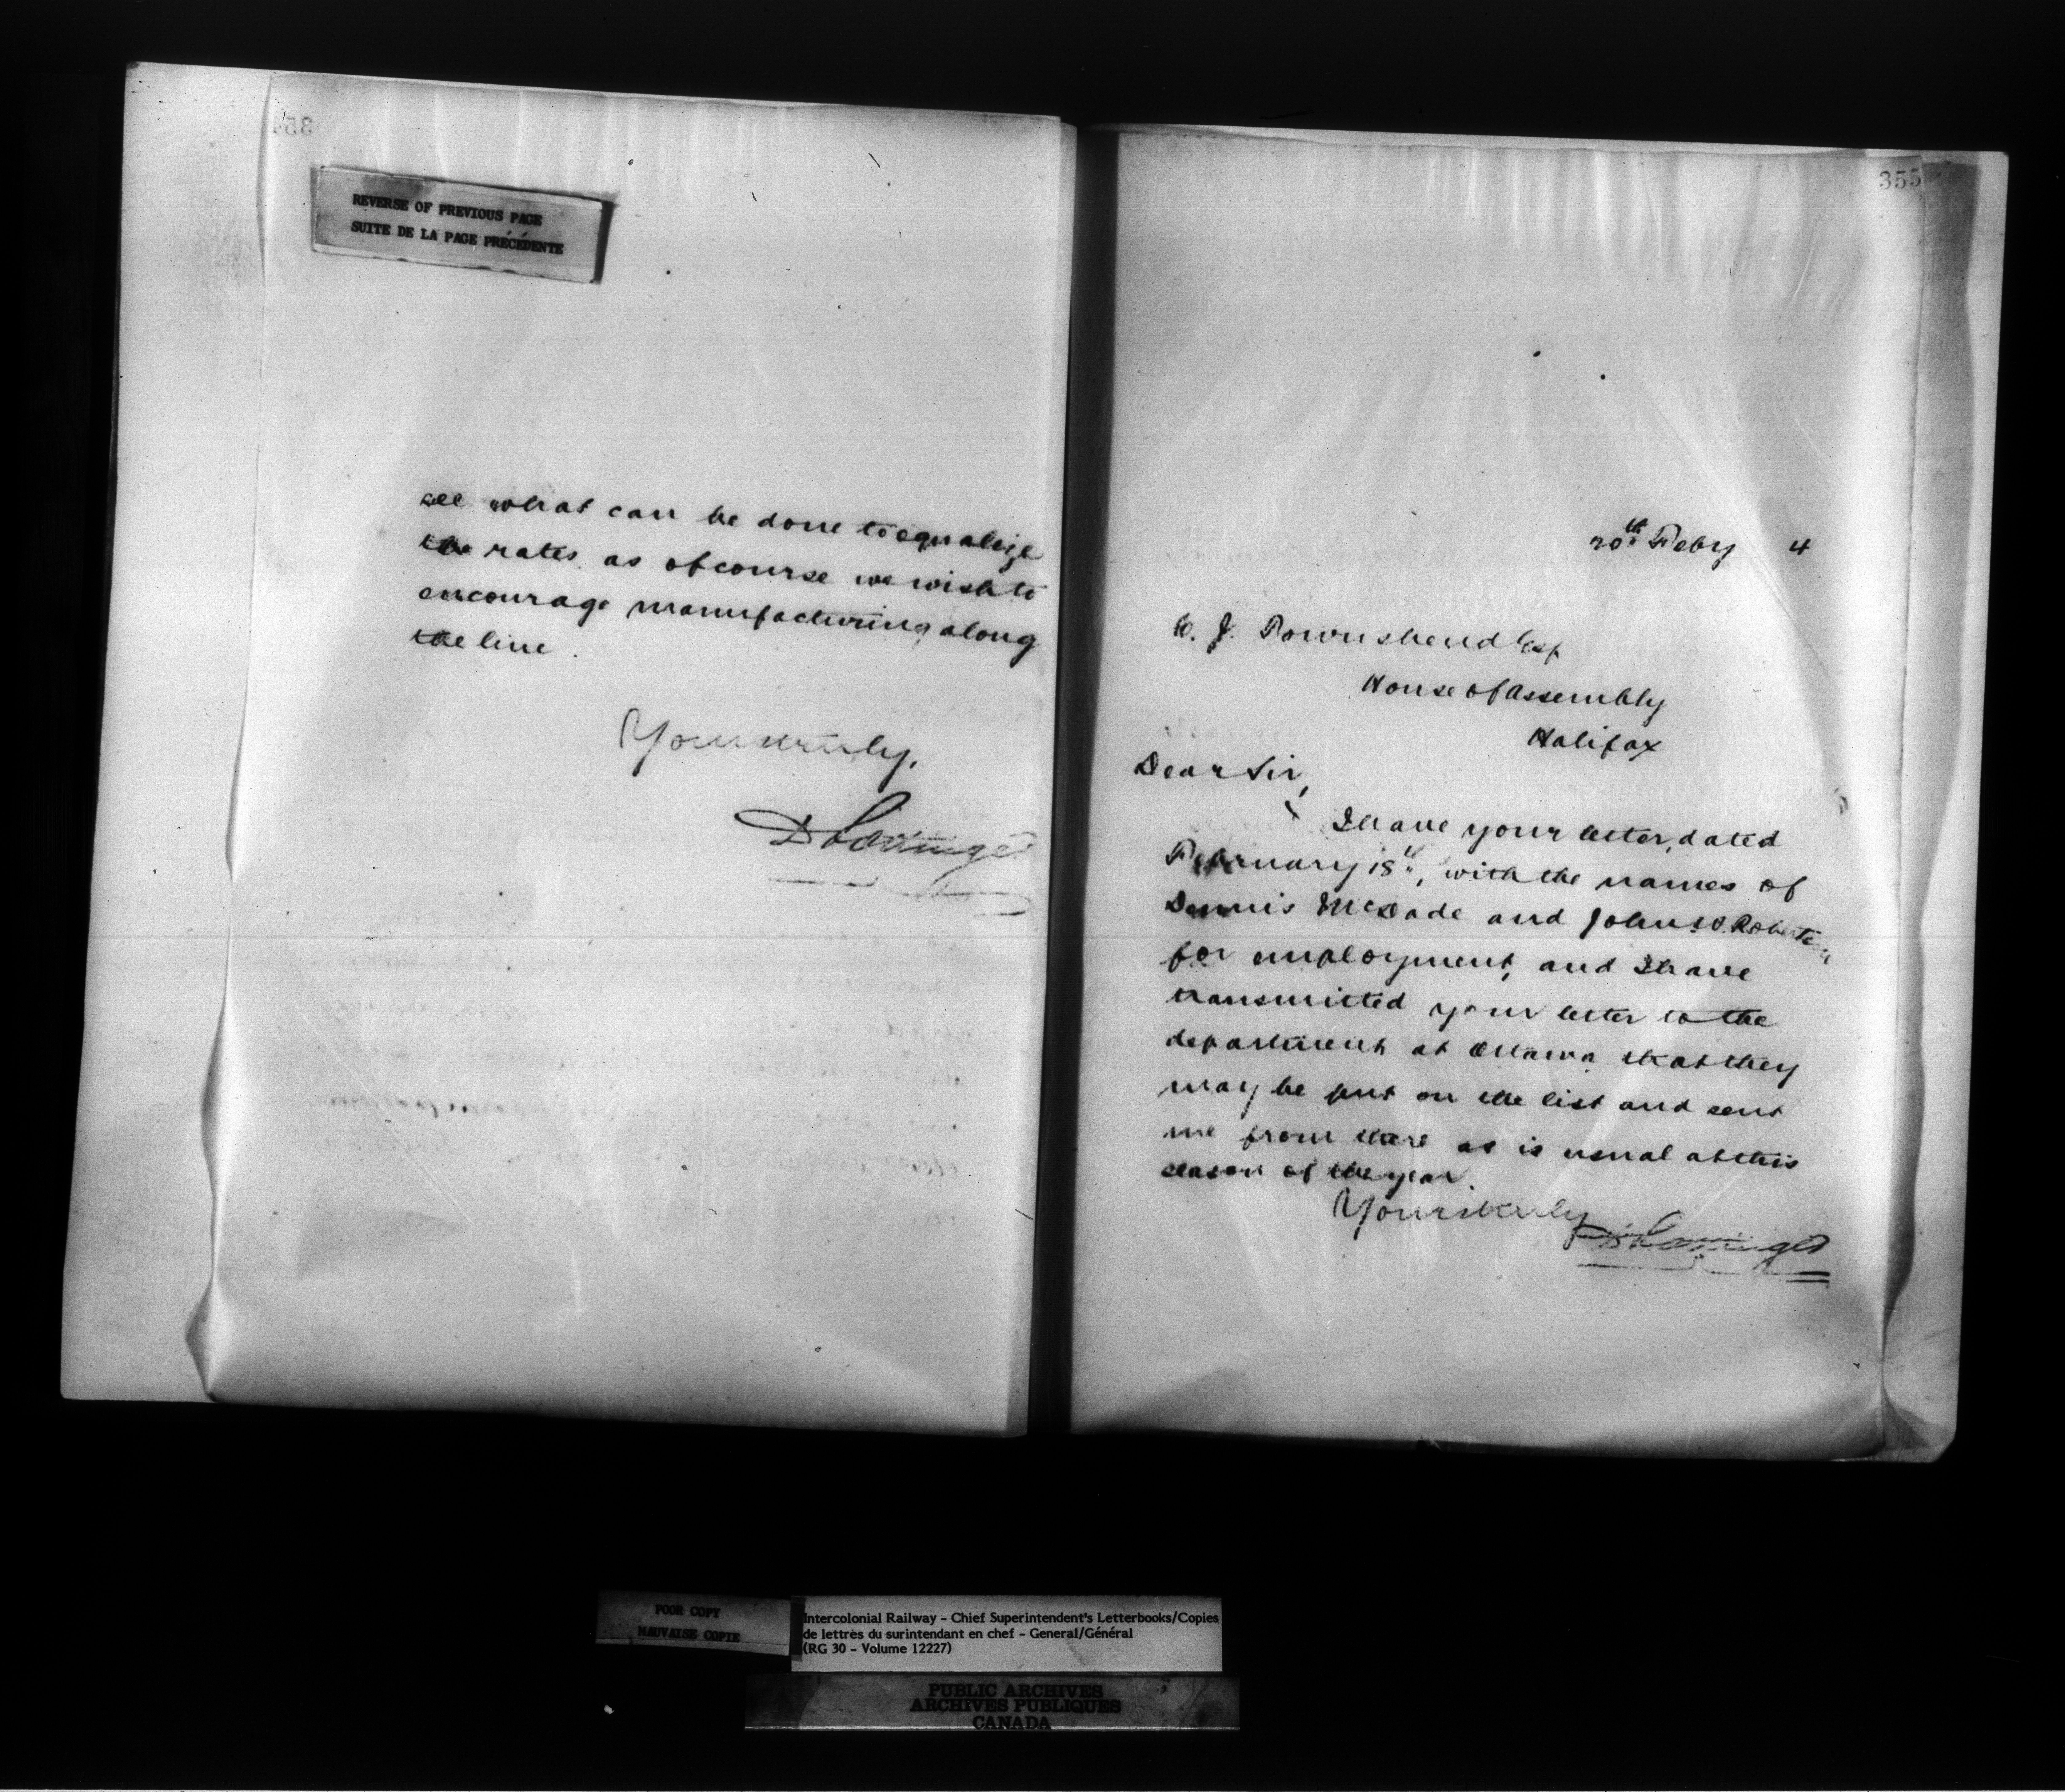 354
REVERSE OF PREVIOUS PAGE
SUITE DE LA PAGE PRÉCÉDENTE
see what can be done to equalize
the rates, as of course we wish to
encourage manufacturing along
the line.
Yours truly,
D Pottinger
355
20th Feby 4
C. J. Townshend Esq
House of Assembly
Halifax
Dear Sir,
I have your letter, dated
February 18th, with the names of
Dennis McDade and John Robertson
for employment, and I have
transmitted your letter to the
department at Ottawa that they
may be put on the list and sent
me from there as is usual at this
season of the year.
Yours truly
D Pottinger
POOR COPY
MAUVAISE COPIE
Intercolonial Railway - Chief Superintendent's Letterbooks/Copies
de lettres du surintendant en chef - General/Général
(RG 30 - Volume 12227)
PUBLIC ARCHIVES
ARCHIVES PUBLIQUES
CANADA